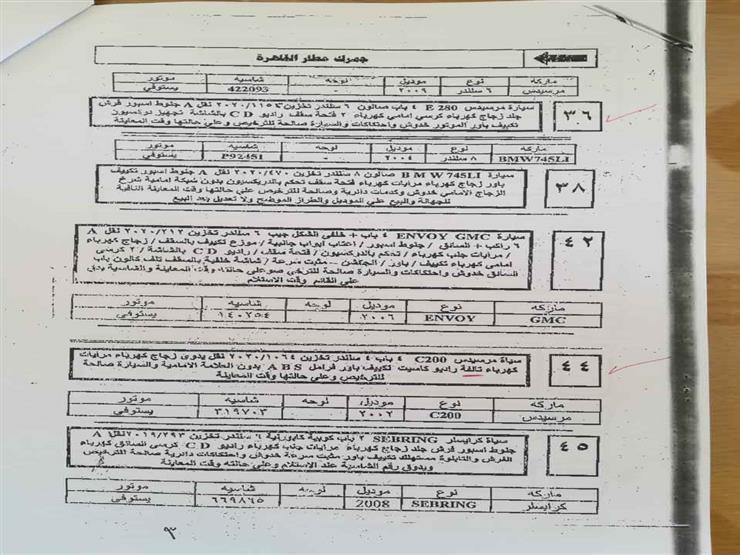 جمرك مطار القاهرة
ماركة نوع موديل لوحة شاسية موتور
مرسيدس ٦ سلندر ٢٠٠٩ - 422093 يستوفي
٣٦
سيارة مرسيدس E 280 ٤ باب صالون ٦ سلندر تخزين ٢٠٢٠/١١٥٤ نقل A جنوط اسبور فرش
جلد زجاج كهرباء كرسي امامي كهرباء ٢ فتحة سقف راديو CD بالشاشة تجهيز
تكييف باور الموتور خدوش واحتكاكات والسيارة صالحة للترخيص وعلي حالتها وقت المعاينة
ماركة نوع موديل لوحة شاسية موتور
BMW745LI ٨ سلندر ٢٠٠٤ - P92451 يستوفي
٣٨
سيارة BMW745LI صالون ٨ سلندر تخزين ٢٠٢٠/٤٧٠ نقل A جنوط اسبور تكييف
باور زجاج كهرباء مرايات كهرباء فتحة سقف تحكم بالدريكسيون بدون شبكة امامية شرخ
الزجاج الامامي خدوش وكدمات دائرية وصالحة للترخيص علي حالتها وقت المعاينة النافية
للجهالة والبيع علي الموديل والطراز الموضح ولا تعديل بعد البيع
٤٢
سيارة ENVOY GMC ٤ باب + خلفي الشكل جيب ٦ سلندر تخزين ٢٠٢٠/٢١٢ نقل A
٦ راكب + السائق / جنوط اسبور / اعتاب ابواب جانبية / موزع تكييف بالسقف / زجاج كهرباء
/ مرايات جنب كهرباء / تحكم بالدركسيون / فتحة سقف / راديو CD بالشاشة / ٢ كرسي
امامي كهرباء تكييف / باور / / مثبت سرعة / شاشة خلفية بالسقف تلف كالون باب
السائق خدوش واحتكاكات والسيارة صالحة للترخيص وعلي حالتها وقت المعاينة والشاسية يدق
علي القائم وقت الاستلام
ماركه نوع موديل لوحه شاسية موتور
GMC ENVOY ٢٠٠٦ - ١٤٠٢٥٤ يستوفي
٤٤
سياة مرسيدس C200 ٤ باب ٤ سلندر تخزين ٢٠٢٠/١٠٦٤ نقل يدوى زجاج كهرباء مرايات
كهرباء تالفة راديو كاسيت تكييف باور فرامل ABS بدون العلامة الامامية والسيارة صالحة
للترخيص وعلي حالتها وقت المعاينة
ماركه نوع موديل لوحه شاسية موتور
مرسيدس C200 ٢٠٠٢ - ٣١٩٧٠٣ يستوفي
٤٥
سياة كرايسلر SEBRING ٢ باب كوبية كابورلية ٦ سلندر تخزين ٢٠١٩/٢٩٣ نقل A
جنوط اسبور فرش جلد زجاج كهرباء مرايات جنب كهرباء راديو CD كرسي السائق كهرباء
الفرش والتابلوة مستهلك تكييف باور مثبت سرعة خدوش واحتكاكات دائرية وصالحة للترخيص
ويدوق رقم الشاسية عند الاستلام وعلي حالته وقت المعاينة
ماركه نوع موديل لوحه شاسية موتور
كرايسلر SEBRING 2008 - ٦٦٩٨٦٥ يستوفي
٣